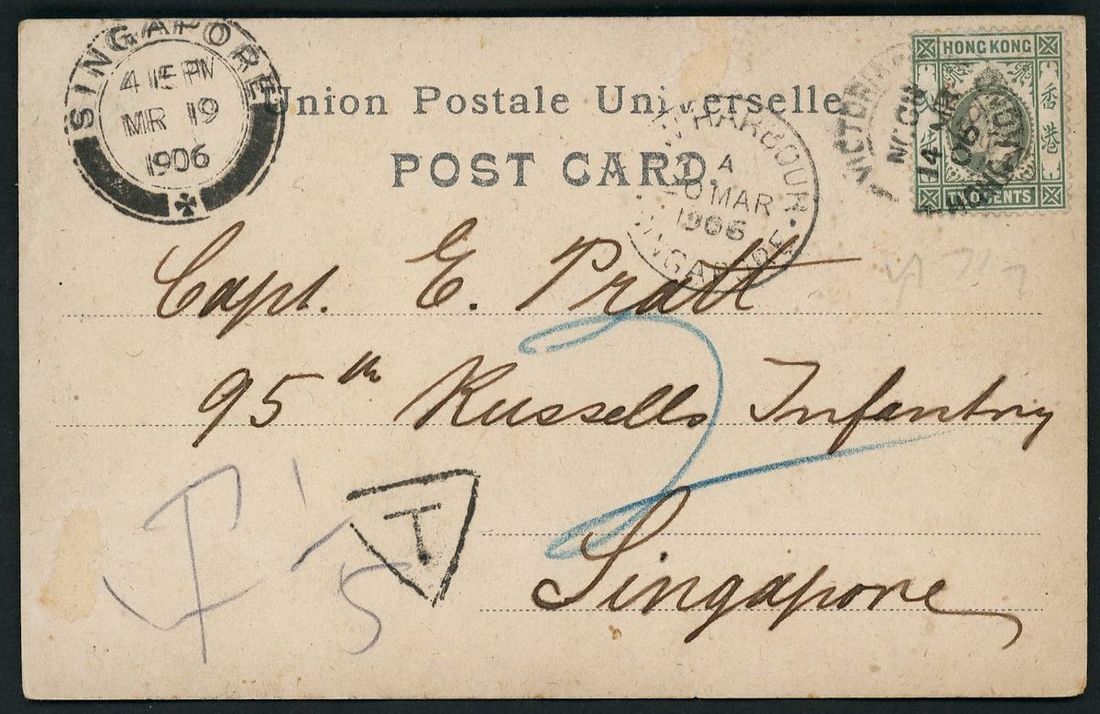 SINGAPORE
4 15 PM
MR 19
1906
Union Postale Universelle
POST CARD.
HARBOUR
A
MAR
1906
VICTORIA
14 MR
06
HONG KONG
HONG KONG
香港
TWO CENTS
Capt. E. Pratt
95th Russells Infantry
Singapore
T
T
1
5
2